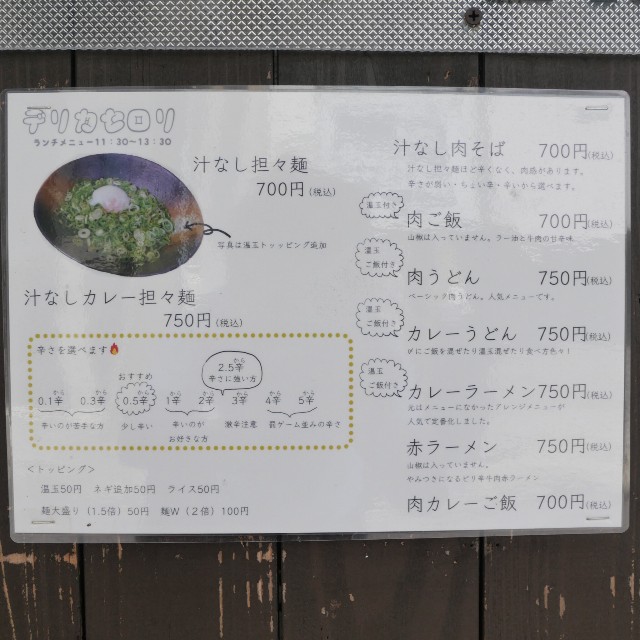 デリカセロリ
ランチメニュー11：30～13：30
汁なし担々麺
700円(税込)
写真は温玉トッピング追加
汁なしカレー担々麺
750円(税込)
辛さを選べます
おすすめ
2.5辛
辛さに強い方
0.1辛 0.3辛 0.5辛 1辛 2辛 3辛 4辛 5辛
から から から から から から から から から
辛いのが苦手な方 少し辛い 辛いのが
お好きな方 激辛注意 罰ゲーム並みの辛さ
<トッピング>
温玉50円 ネギ追加50円 ライス50円
麺大盛り（1.5倍）50円 麺W（2倍）100円
汁なし肉そば 700円(税込)
汁なし担々麺ほど辛くなく、肉感があります。
辛さが弱い・ちょい辛・辛いから選べます。
温玉付き
肉ご飯 700円(税込)
山椒は入っていません。ラー油と牛肉の甘辛味
温玉
ご飯付き
肉うどん 750円(税込)
ベーシック肉うどん。人気メニューです。
温玉
ご飯付き
カレーうどん 750円(税込)
〆にご飯を混ぜたり温玉混ぜたり食べ方色々！
温玉
ご飯付き
カレーラーメン750円(税込)
元はメニューになかったアレンジメニューが
人気で定番化しました。
赤ラーメン 750円(税込)
山椒は入っていません。
やみつきになるピリ辛牛肉赤ラーメン
肉カレーご飯 700円(税込)